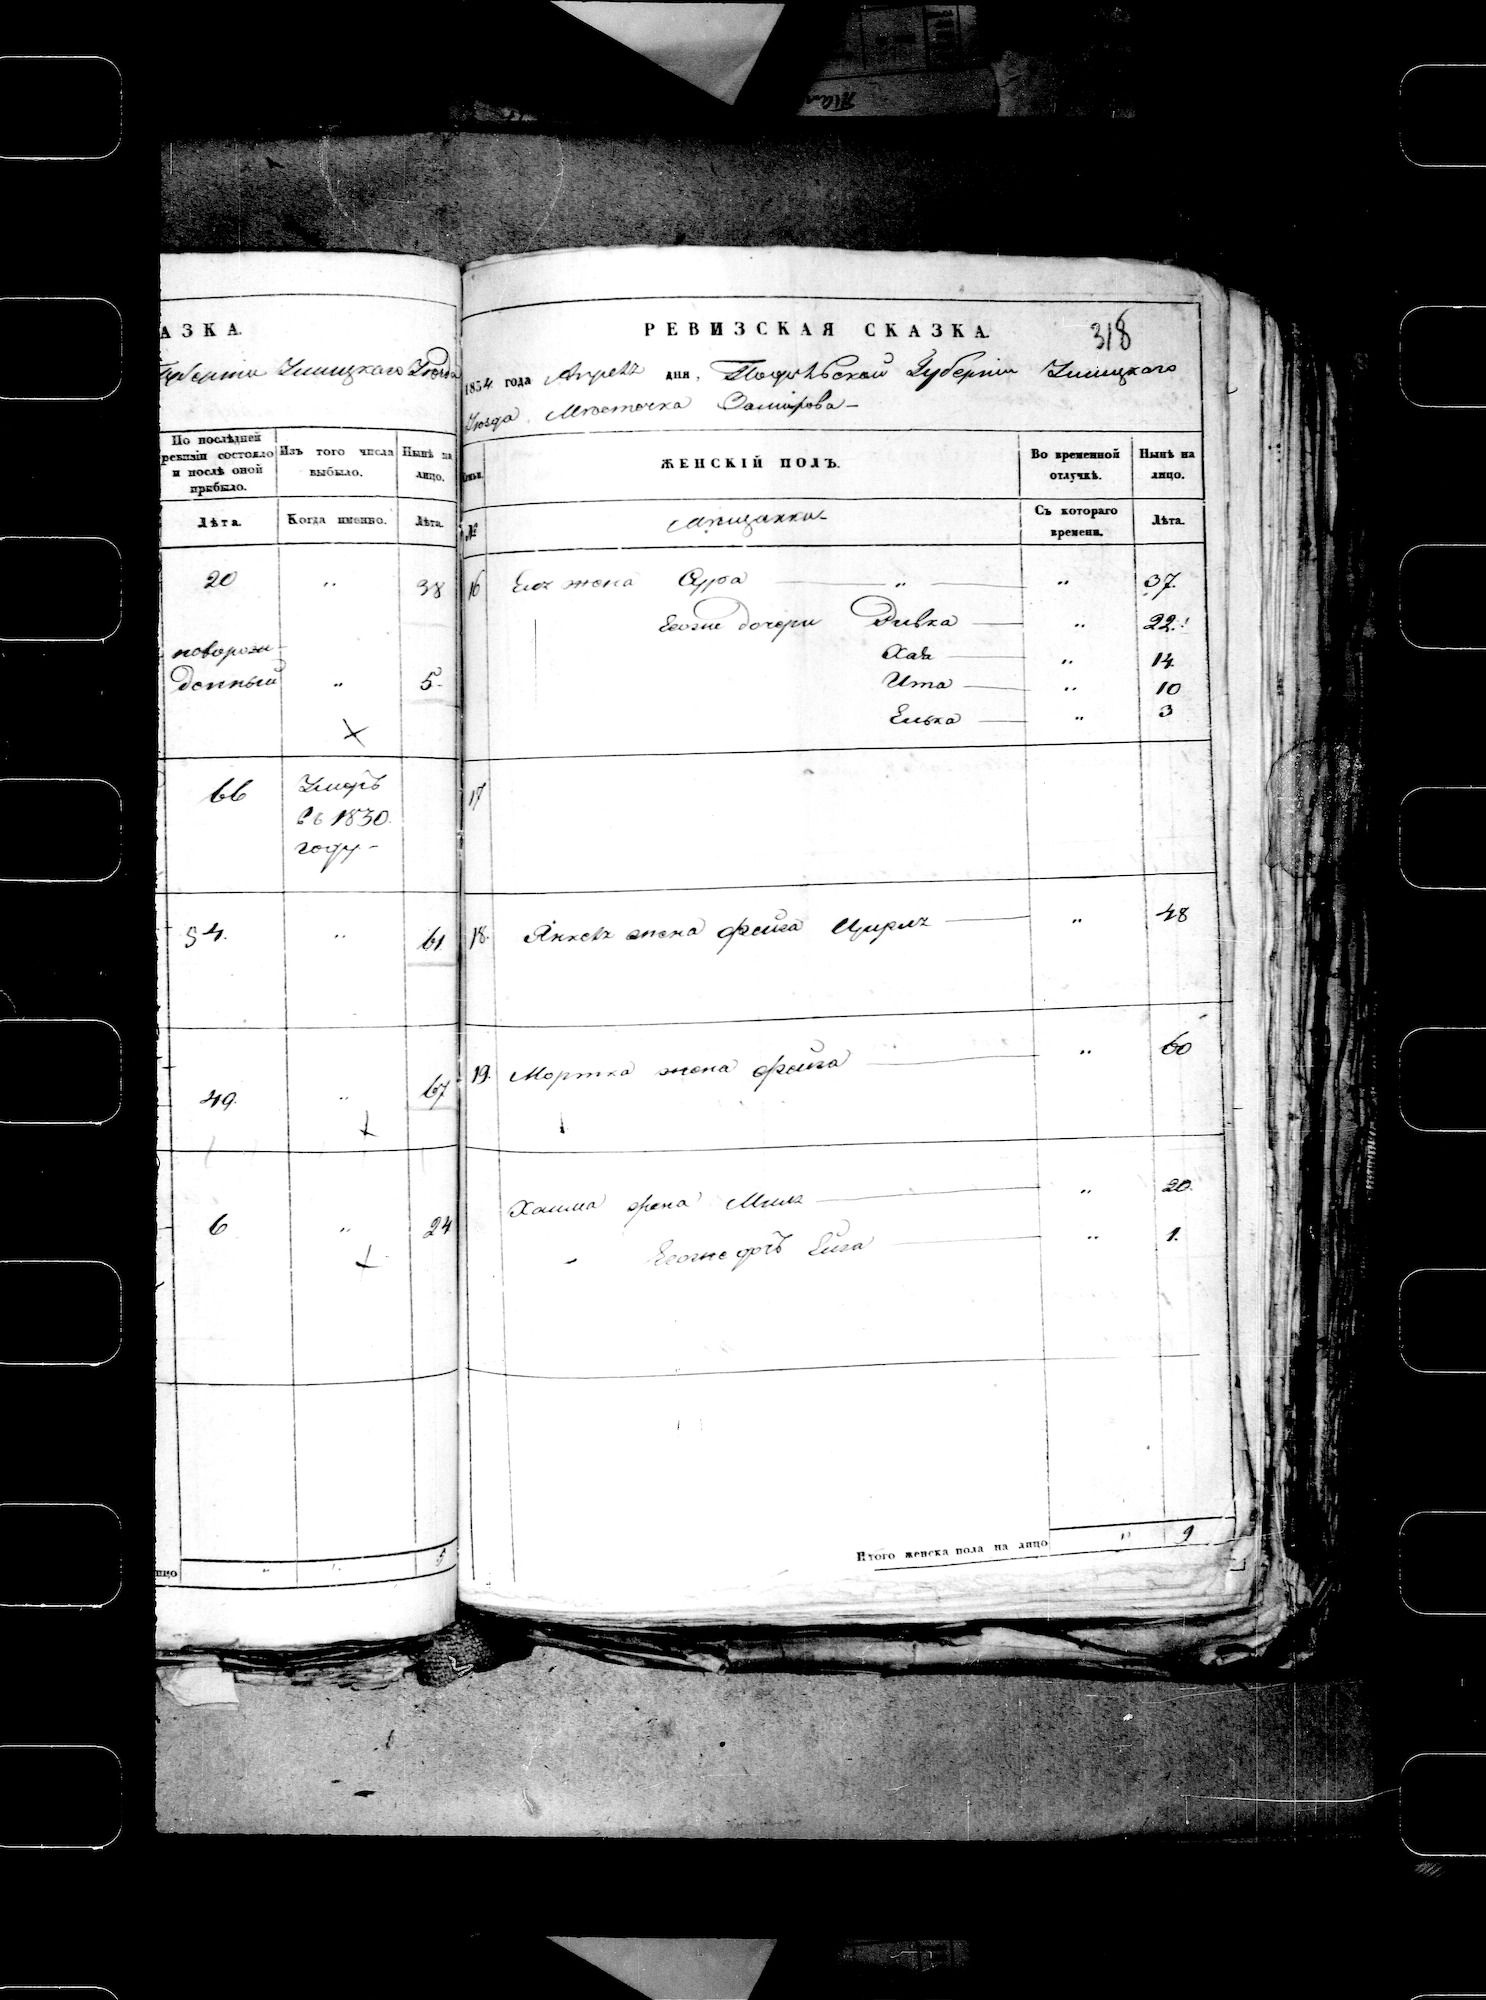 АЗКА.
Губерніи Ушицкаго Уѣзда
По послѣдней
ревизіи состояло
и послѣ оной
прибыло.
Изъ того числа
выбыло.
Нынѣ на
лицо.
Лѣта.
Когда именно.
Лѣта.
20 „ 38
новорож-
денный „ 5.
66
Умеръ
въ 1830.
году-
54. „ 61
49. „ 67
6 „ 24
лицо „ 5
РЕВИЗСКАЯ СКАЗКА.
318
1854 года Апрелѣ дня, Подольской Губерніи Ушицкаго
Уѣзда Мѣстечка Замѣхова-
Семьи.
ЖЕНСКІЙ ПОЛЪ.
Во временной
отлучкѣ.
Нынѣ на
лицо.
№
Мѣщанки-
Съ котораго
времени.
Лѣта.
16 Его жена Сура — „ — „ 37.
Егоже дочери Ривка — „ 22.
Хая — „ 14
Ита — „ 10
Елька — „ 3
17
18. Янкеля жена Фейга Цирля — „ 48
19. Мортка жена Фейга — „ 60
Хаима жена — „ 20.
Егоже дочь — „ 1.
Итого женска пола на лицо „ 9